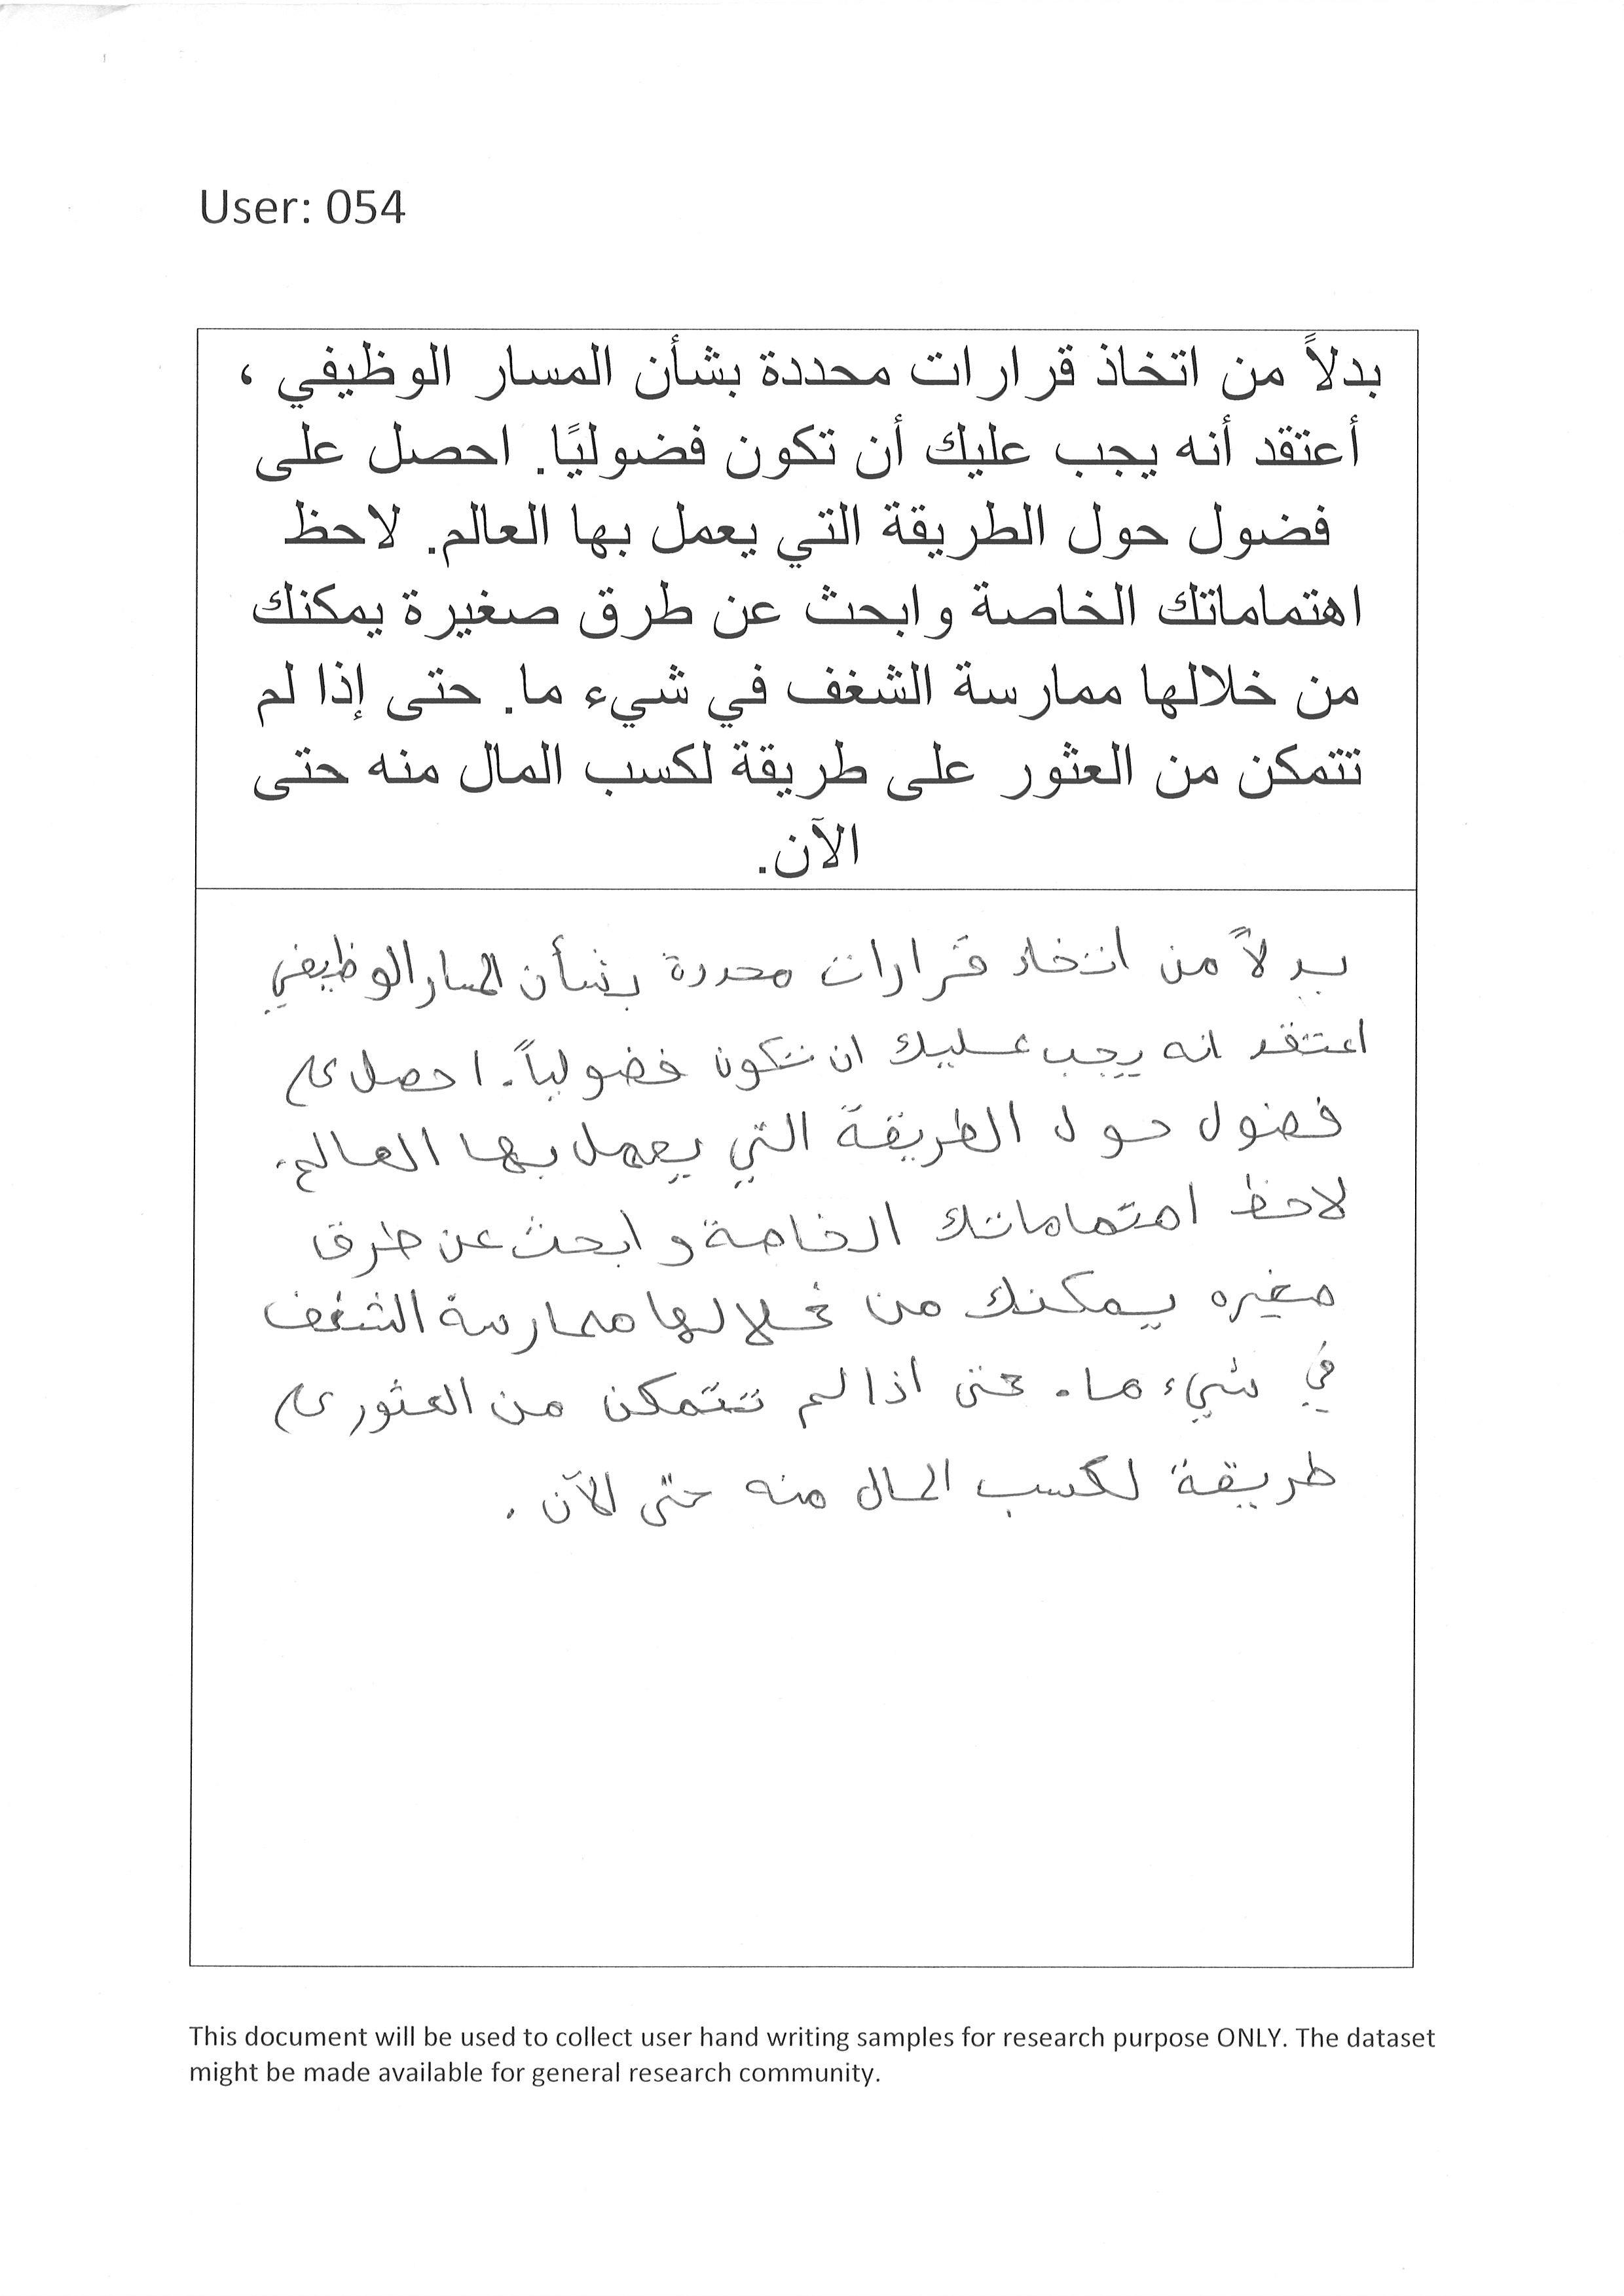 User: 054
بدلاً من اتخاذ قرارات محددة بشأن المسار الوظيفي ،
أعتقد أنه يجب عليك أن تكون فضوليًا. احصل على
فضول حول الطريقة التي يعمل بها العالم. لاحظ
اهتماماتك الخاصة وابحث عن طرق صغيرة يمكنك
من خلالها ممارسة الشغف في شيء ما. حتى إذا لم
تتمكن من العثور على طريقة لكسب المال منه حتى
الآن.
بدلاً من اتخاذ قرارات محددة بشأن المسار الوظيفي
اعتقد انه يجب عليك ان تكون فضولياً. احصل على
فضول حول الطريقة التي يعمل بها العالم.
لاحظ اهتماماتك الخاصة وابحث عن طرق
صغيره يمكنك من خلالها ممارسة الشغف
في شيء ما. حتى اذا لم تتمكن من العثور على
طريقة لكسب المال منه حتى الآن .
This document will be used to collect user hand writing samples for research purpose ONLY. The dataset
might be made available for general research community.